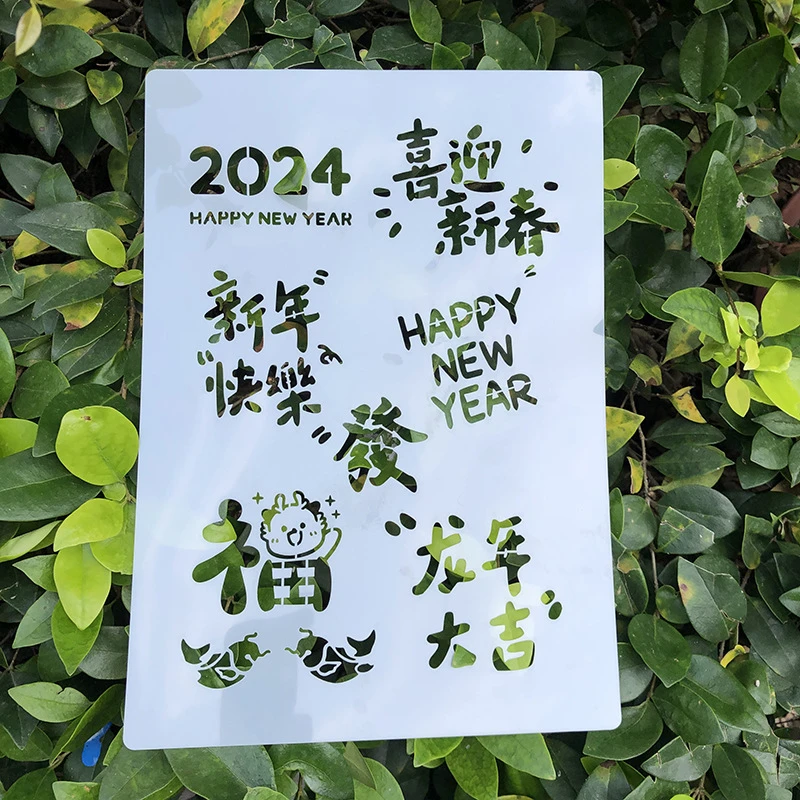 2024
HAPPY NEW YEAR
喜迎
新春
新年
快樂
HAPPY
NEW
YEAR
發
福
龙年
大吉